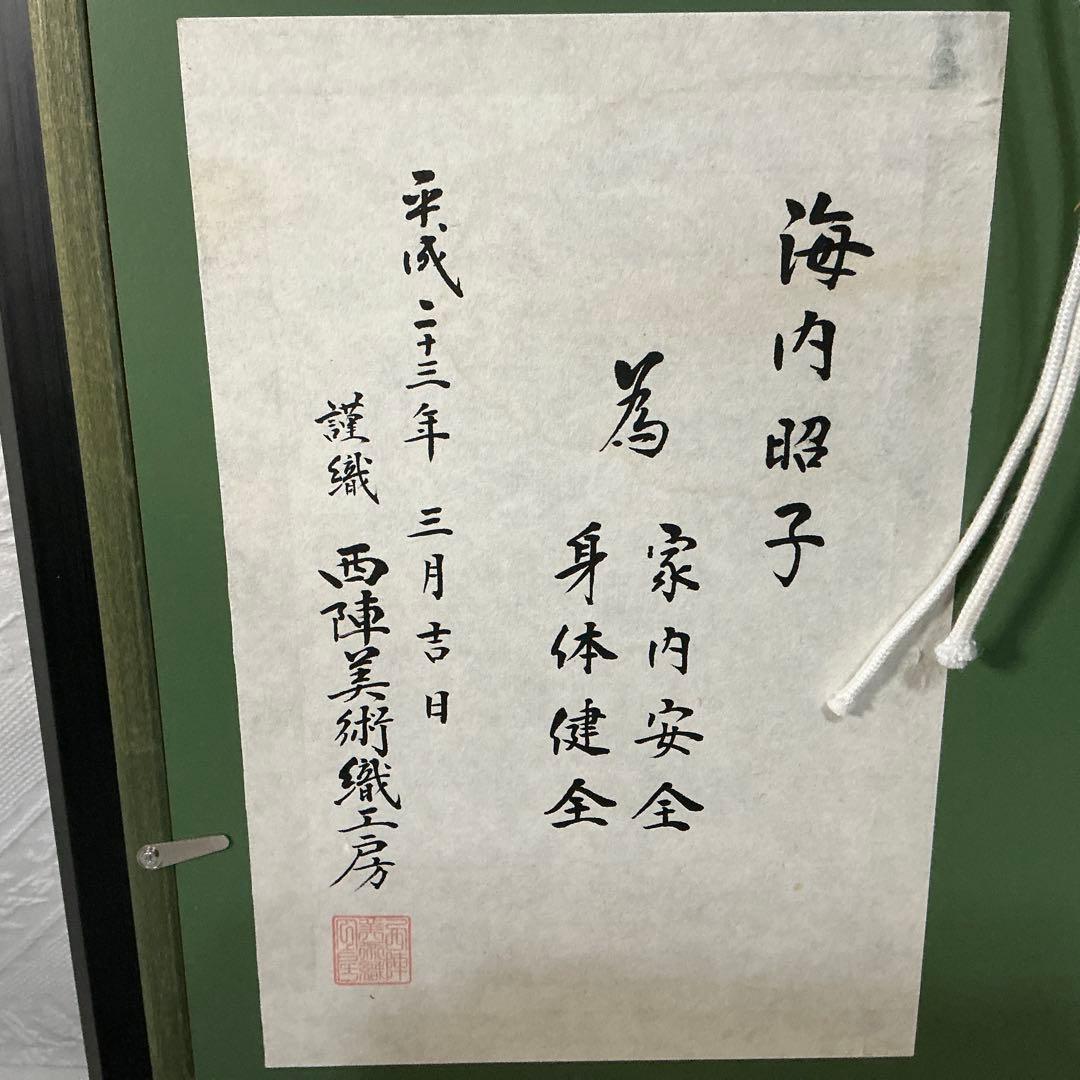 海内昭子
為
家内安全
身体健全
平成二十三年 三月吉日
謹織 西陣美術織工房